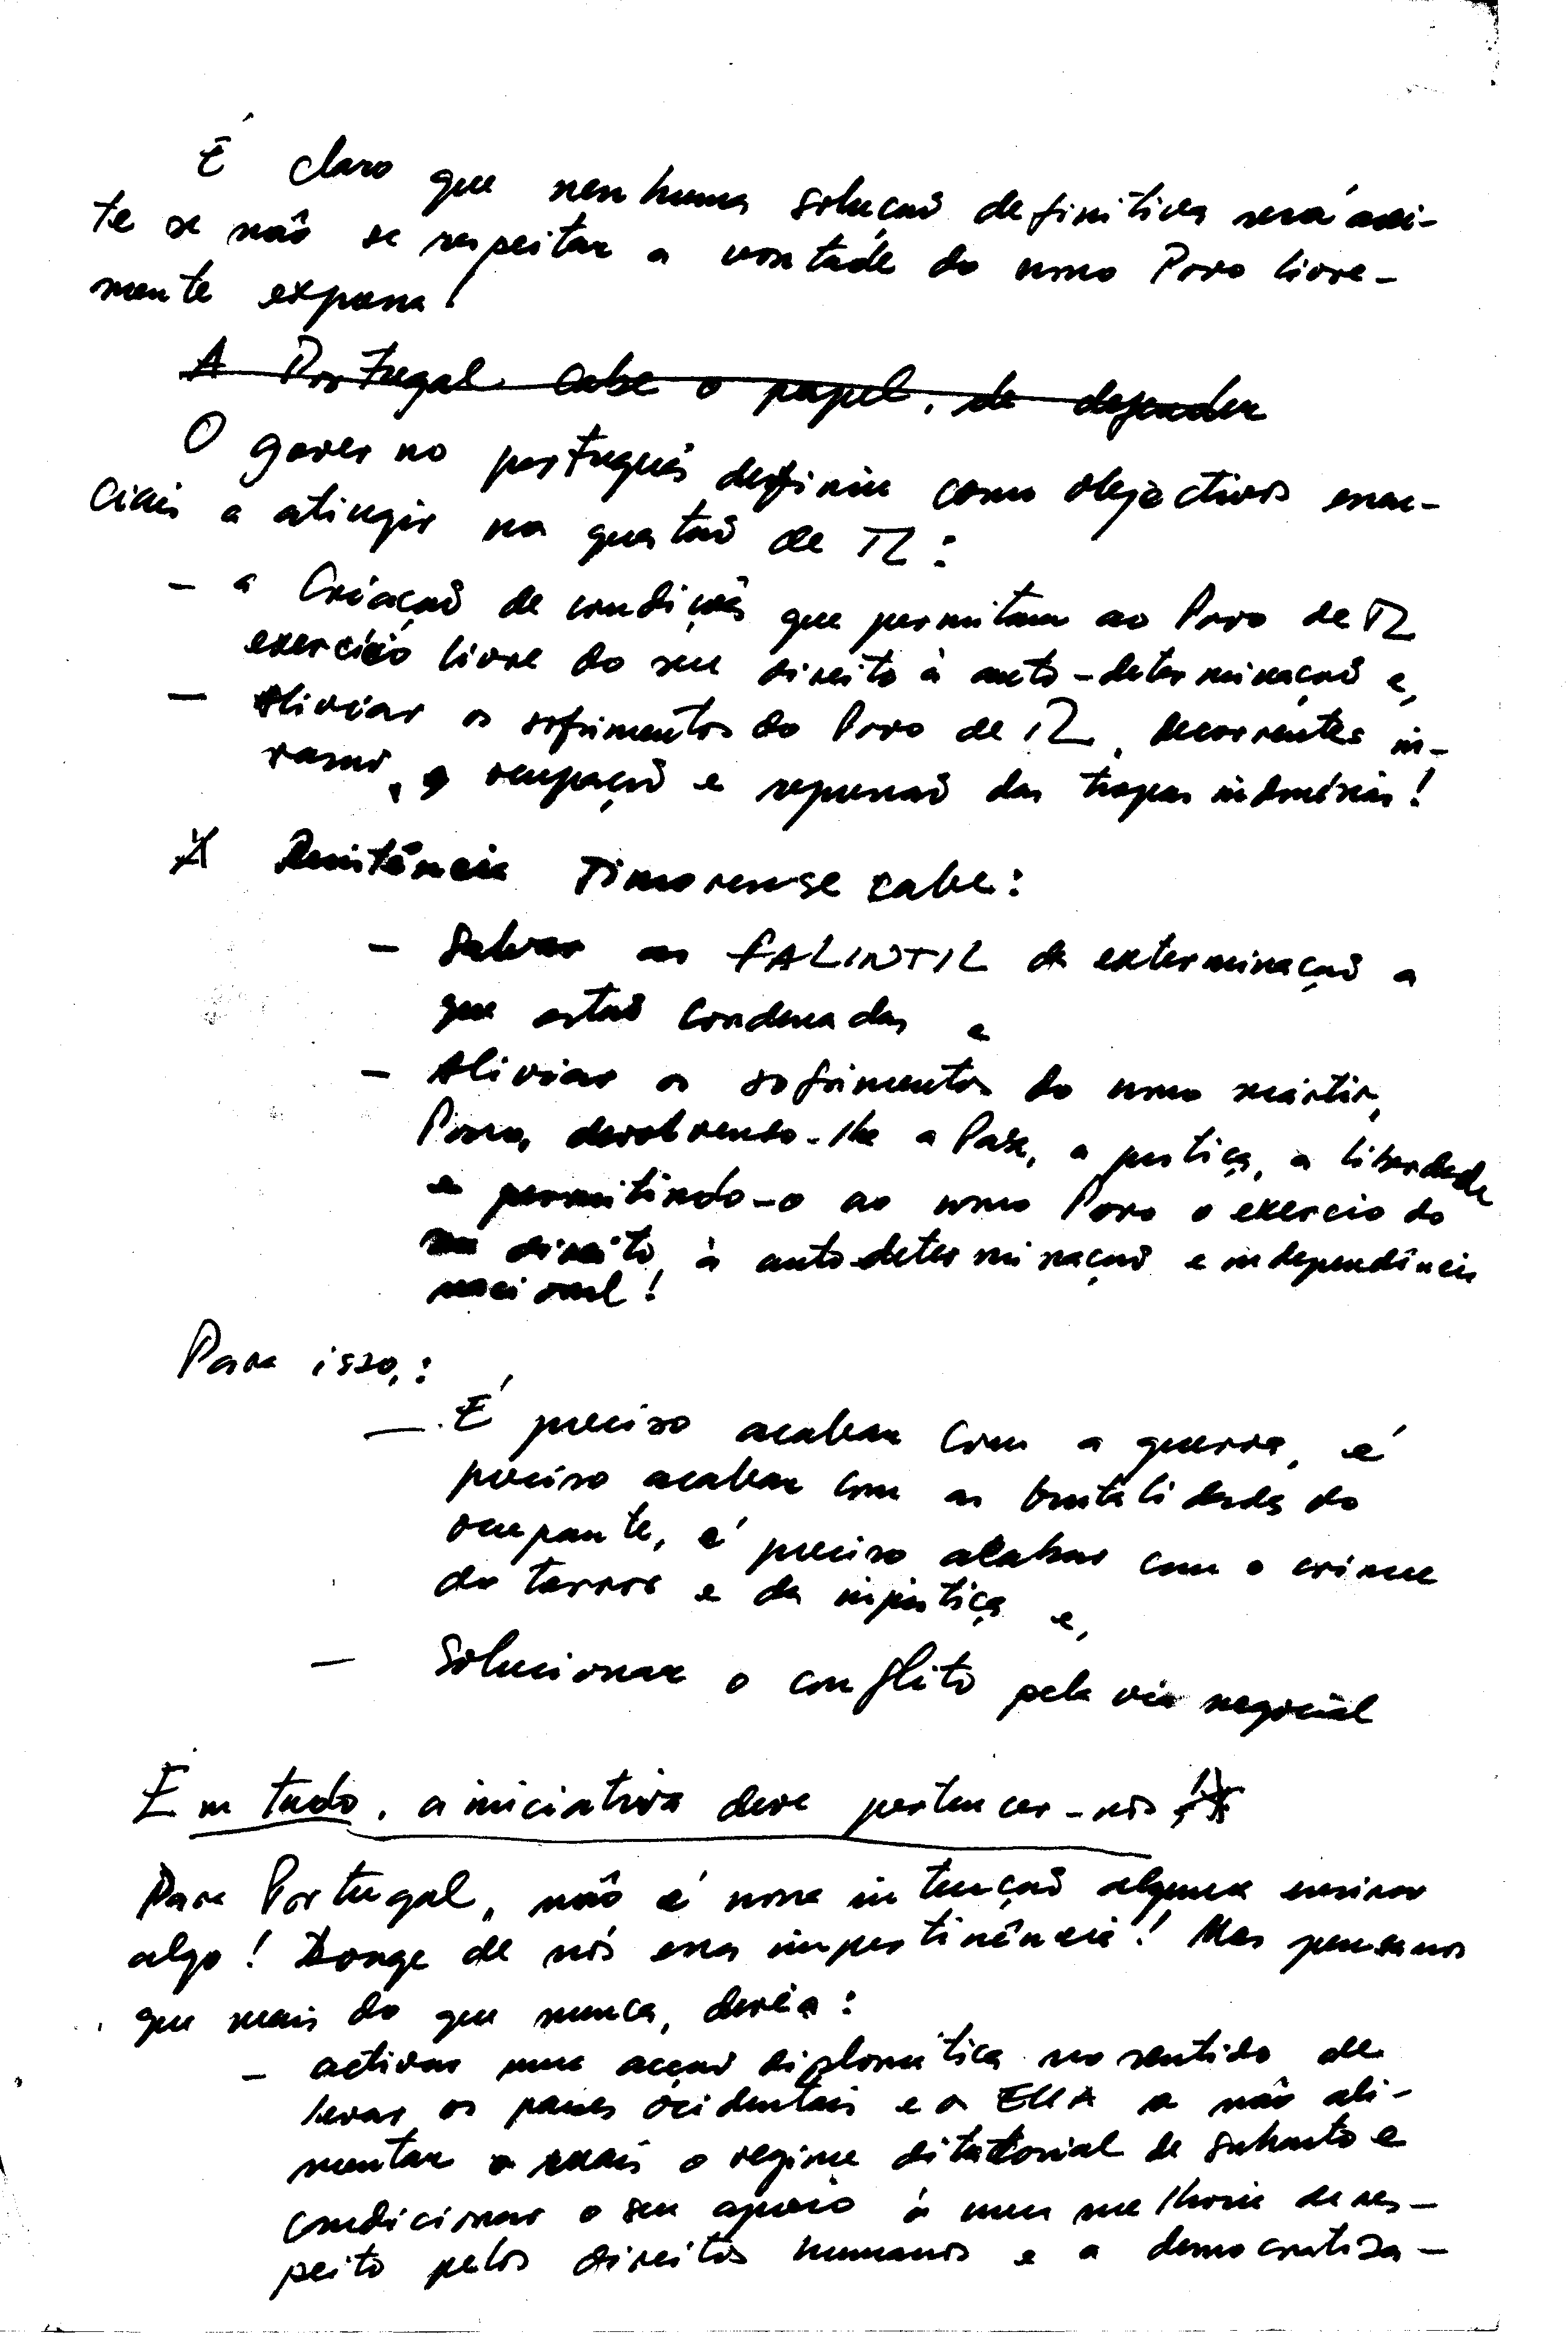 É claro que nenhuma solução definitiva será acei-
te se não se respeitar a vontade do nosso Povo livre-
mente expressa!
A Portugal cabe o papel, de defender
O governo português definiu como objectivos essen-
ciais a atingir na questão de TL:
- a Criação de condições que permitam ao Povo de TL
exercício livre do seu direito à auto-determinação e,
- Aliviar os sofrimentos do Povo de TL, decorrentes in-
vasão, ocupação e repressão das tropas indonésias!
À Resistência Timorense cabe:
- Salvar as FALINTIL da exterminação a
que estão condenadas e
- Aliviar os sofrimentos do nosso mártir,
Povo, devolvendo-lhe a Paz, a justiça, a liberdade
e permitindo-o ao nosso Povo o exercio do
seu direito, à auto-determinação e independência
nacional!
Para isso,:
- É preciso acabar com a guerra, é
preciso acabar com as brutalidades do
ocupante, é preciso acabar com o crime
do terror e da injustiça e,
- Solucionar o conflito pela via negocial
Em tudo, a iniciativa deve pertencer-nos
Para Portugal, não é nossa intenção alguma ensinar
algo! Longe de nós essa impertinência! Mas pensamos
que mais do que nunca, devia:
- activar uma acção diplomática no sentido de
levar os países ocidentais e os EUA a não ali-
mentar mais o regime ditatorial de Suharto e
condicionar o seu apoio à uma melhoria de res-
peito pelos direitos humanos e a democratiza-